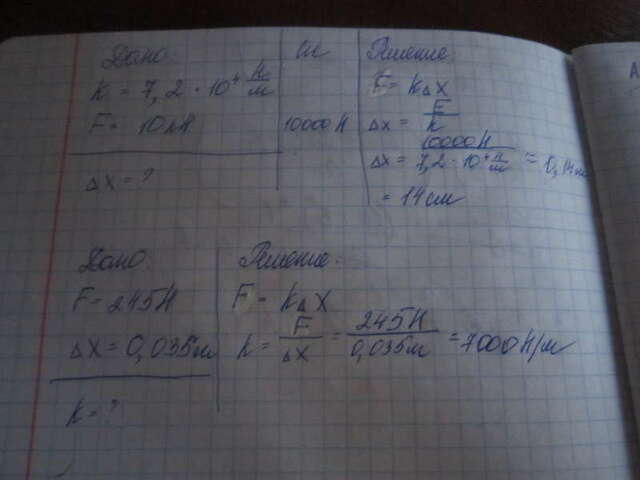 Дано
Си
Решение
K = 7,2 · 10⁴ Н/м
F = 10кН
10000 Н
Δx = ?
F = KΔX
Δx = F/k
Δx = 10000Н / 7,2 · 10⁴ Н/м = 0,14м
= 14 см
Дано
F = 245Н
Δx = 0,035м
K = ?
Решение.
F = KΔX
K = F/Δx = 245Н/0,035м = 7000Н/м
A